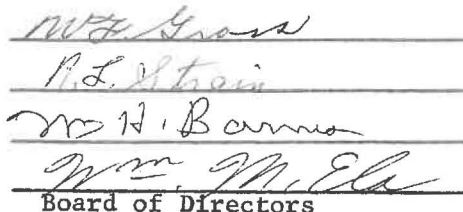 W. F. Gross
R. L. Strain
Wm H. Barnes
Wm. M. Ela
Board of Directors